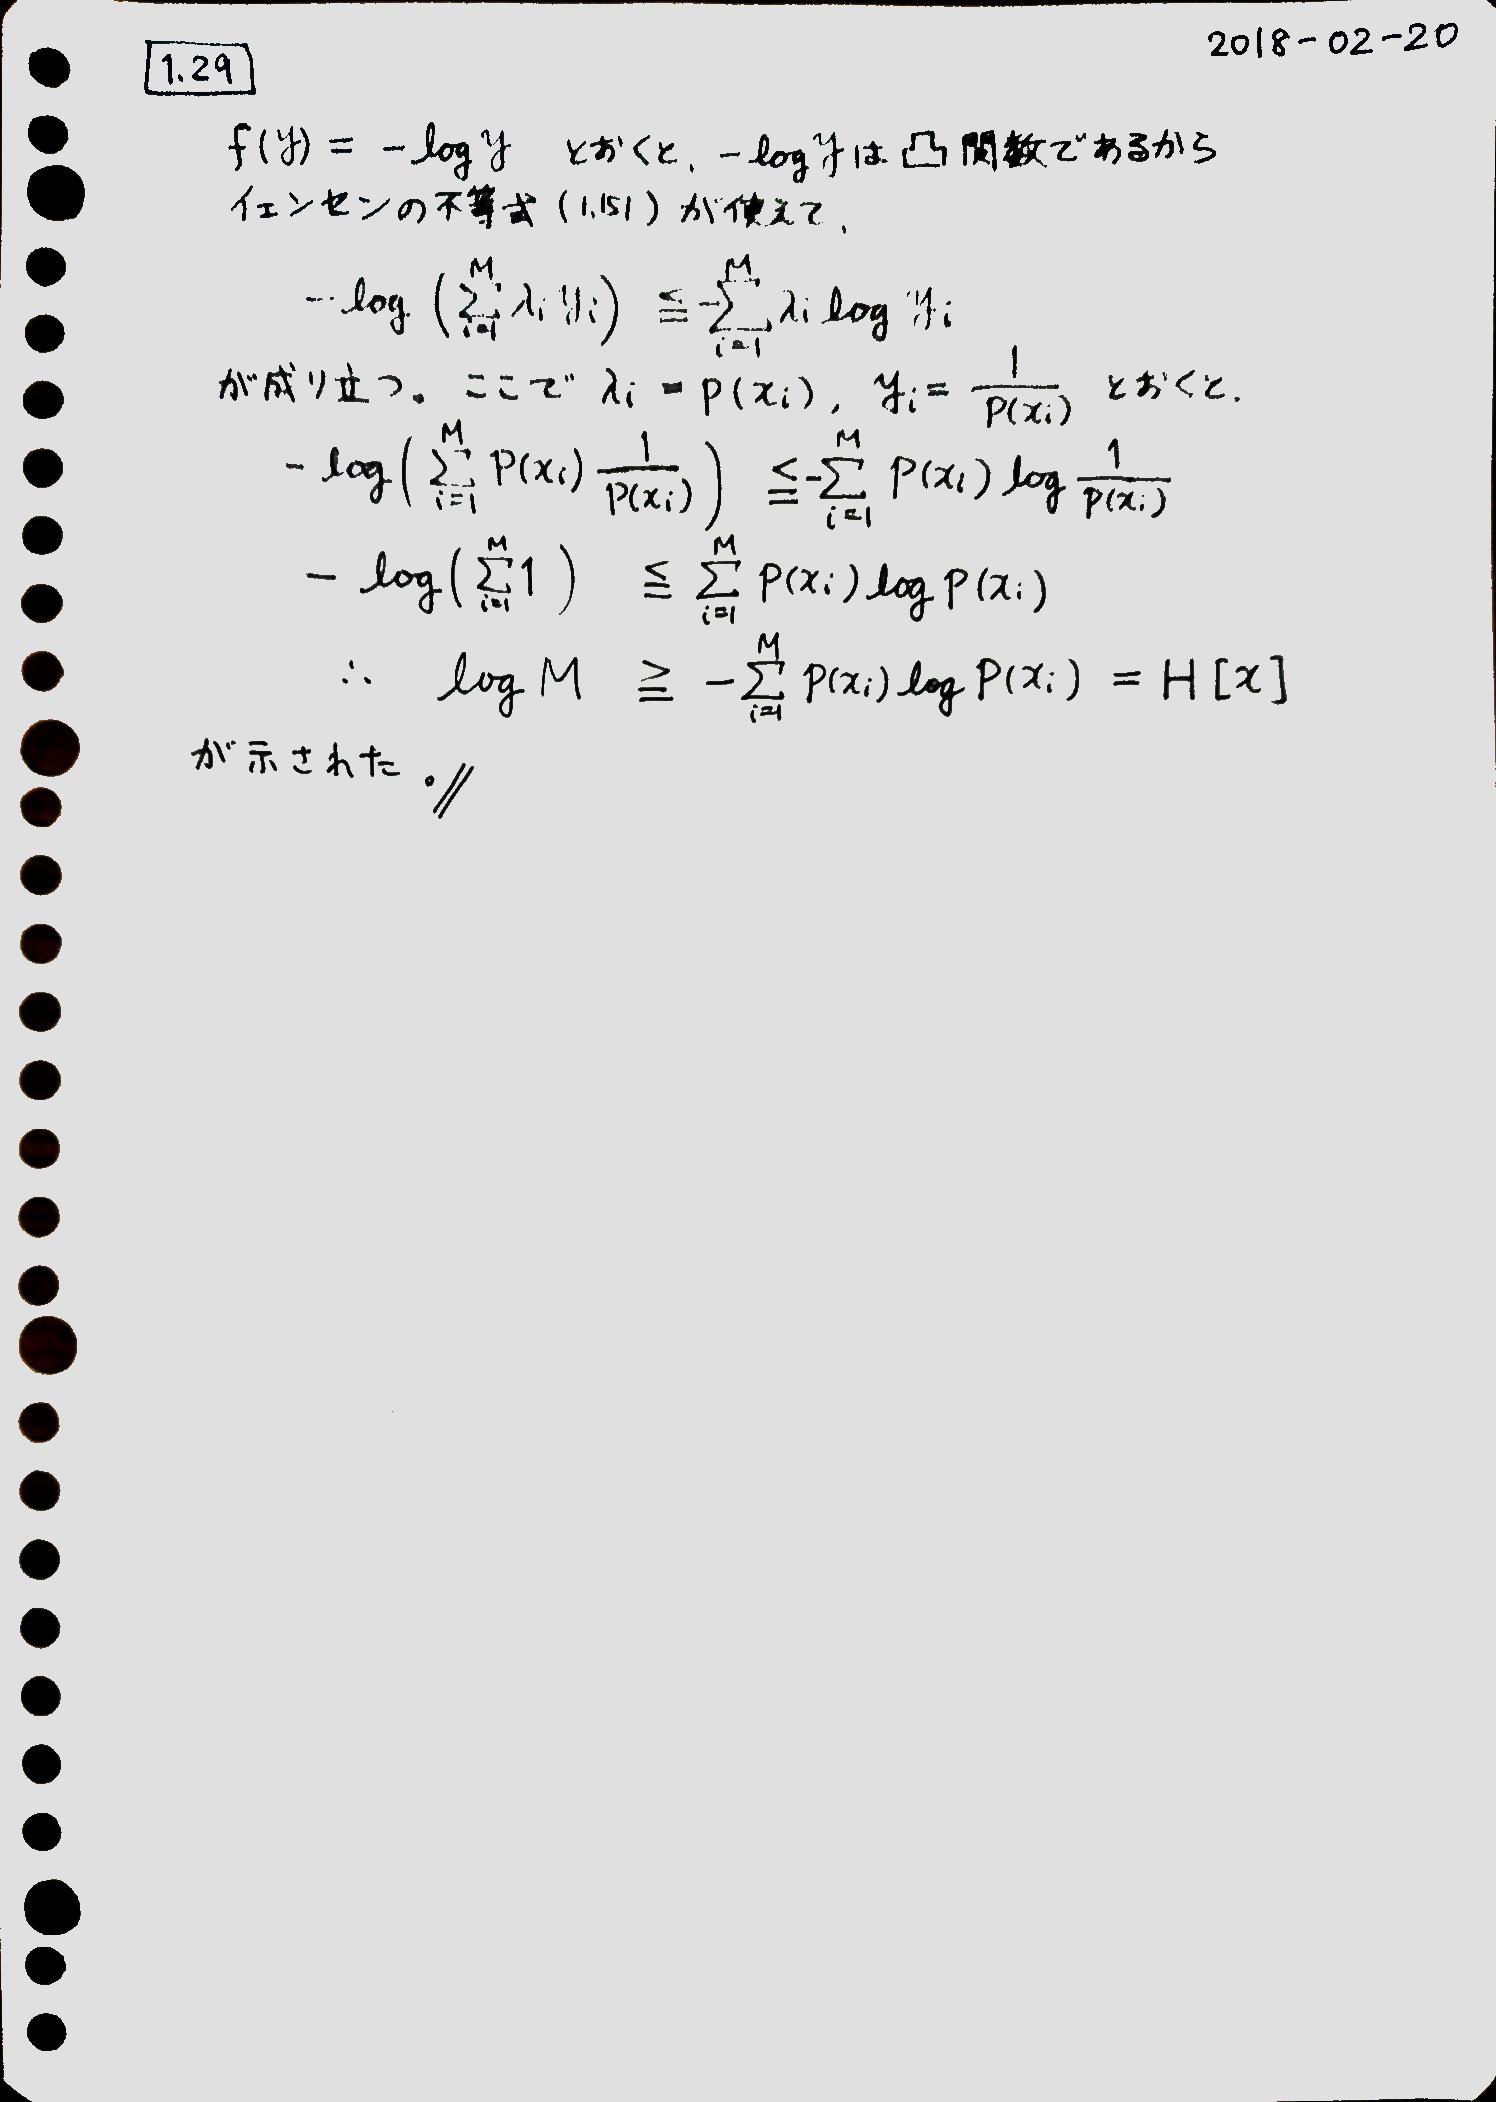 2018-02-20
1.29
f(y) = -log y とおくと、-log y は 凸 関数であるから
イェンセンの不等式 (1.151) が使えて、
-log (∑_{i=1}^{M} λi yi) ≦ -∑_{i=1}^{M} λi log yi
が成り立つ。ここで λi = P(xi), yi = 1/P(xi) とおくと、
-log(∑_{i=1}^{M} P(xi) 1/P(xi)) ≦ -∑_{i=1}^{M} P(xi) log 1/P(xi)
-log(∑_{i=1}^{M} 1) ≦ ∑_{i=1}^{M} P(xi) log P(xi)
∴ log M ≧ -∑_{i=1}^{M} P(xi) log P(xi) = H[x]
が示された。//